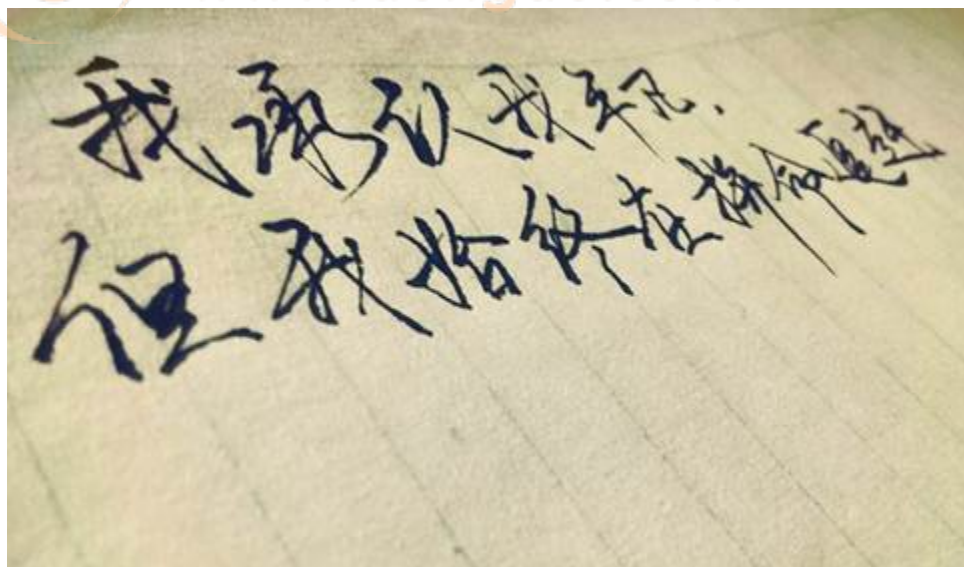 我承认我平凡.
但我始终在拼命追赶